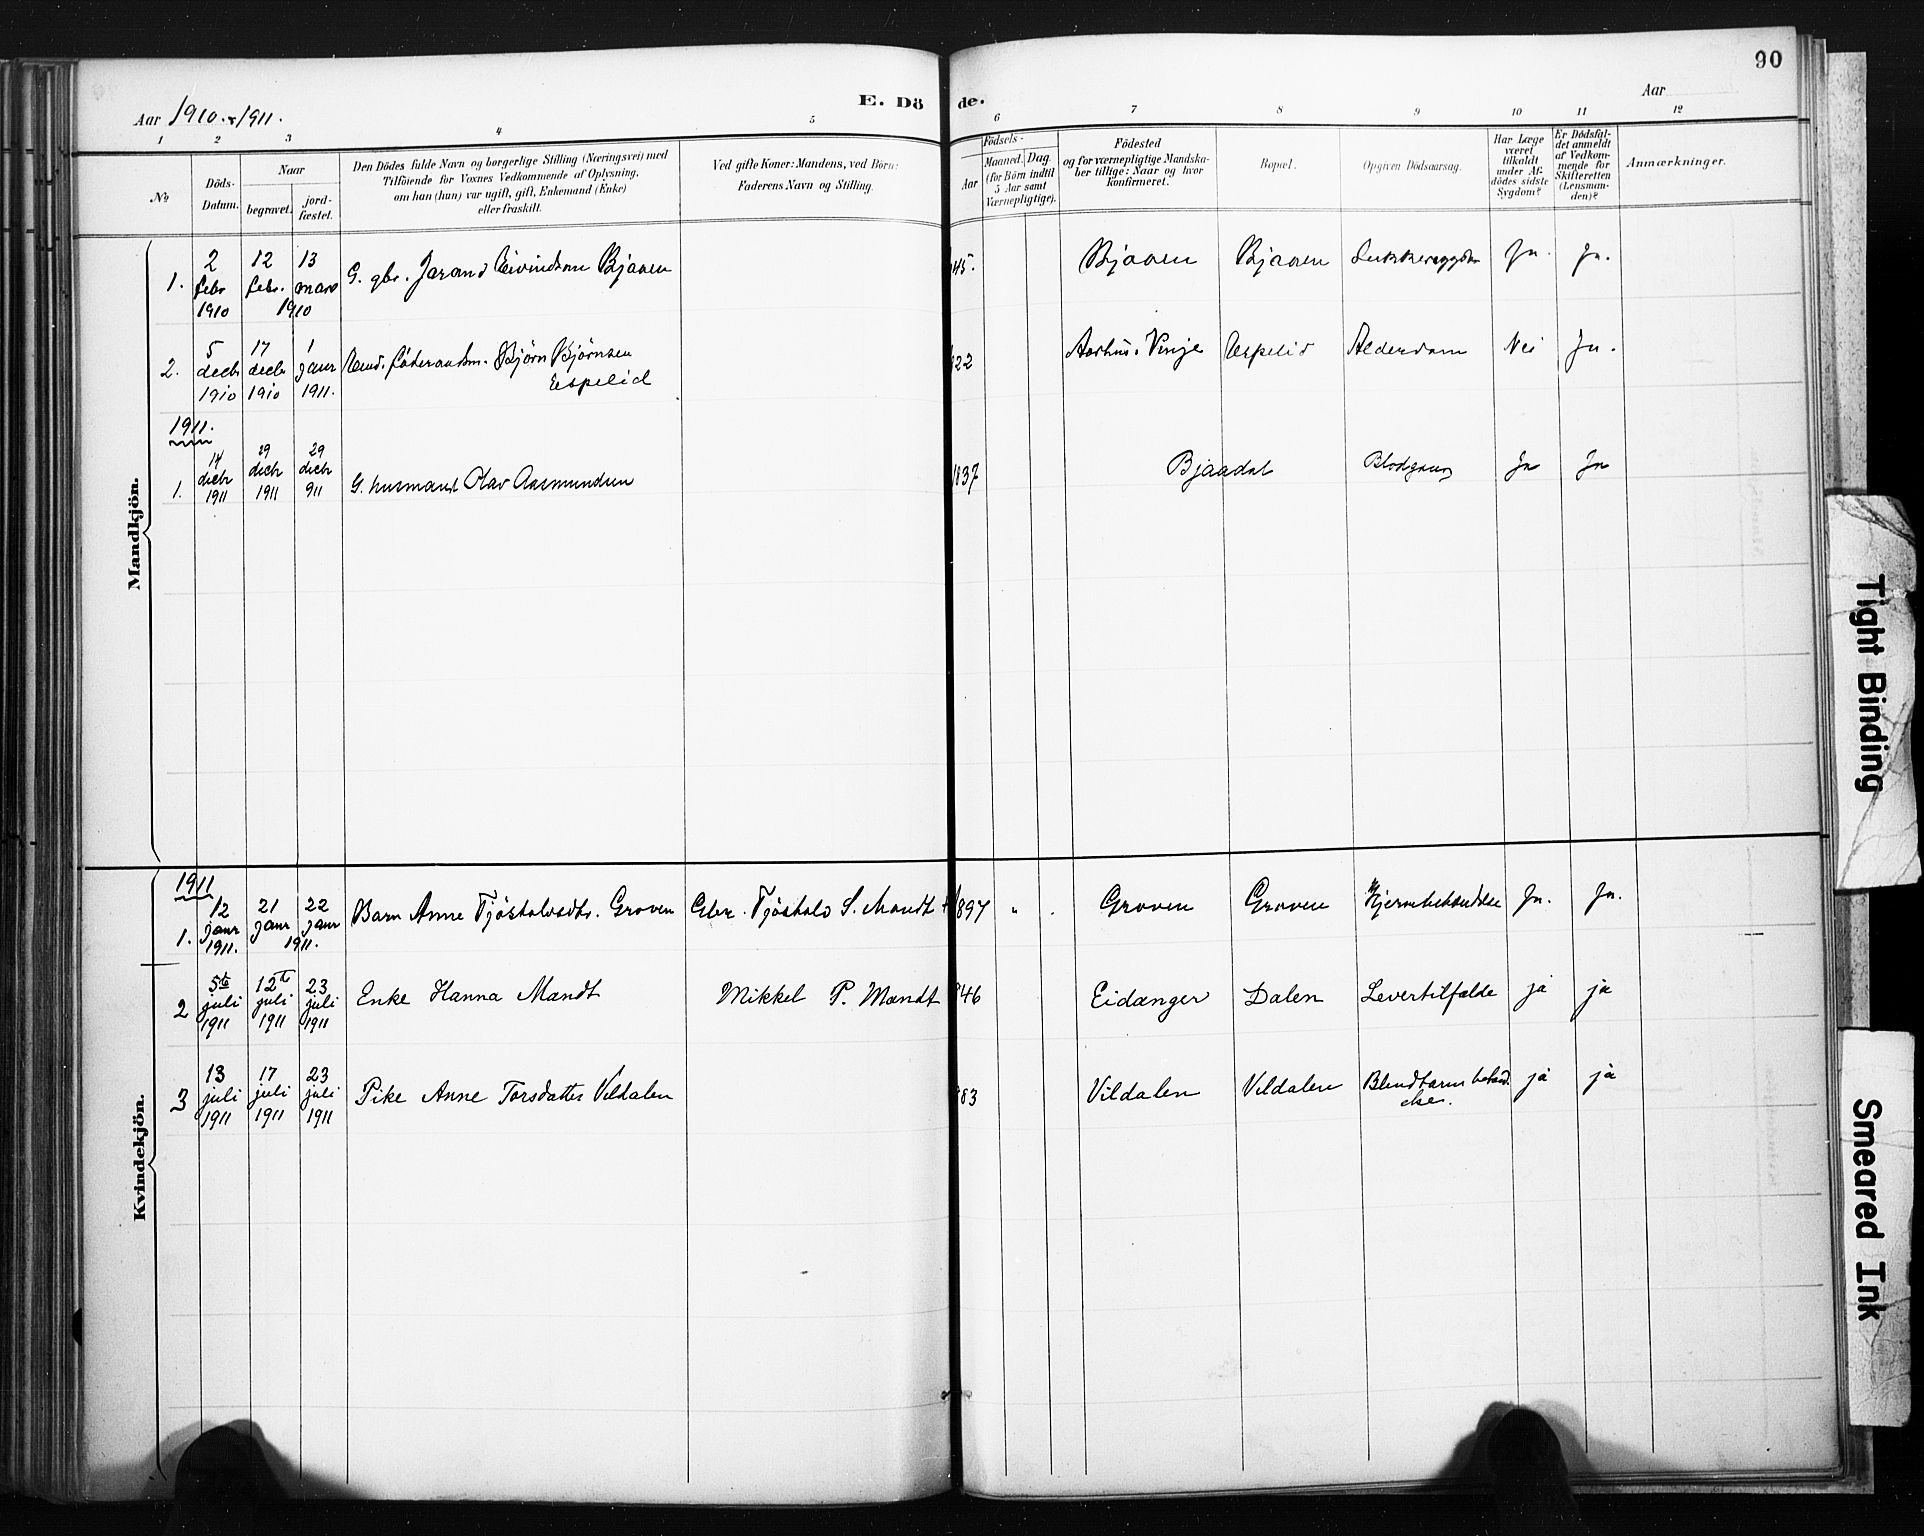 90
Aar 1910 & 1911.
E. Dö de.
Aar
1 2 3 4 5 6 7 8 9 10 11 12
No
Döds-Datum.
Naar
begravet.
jord-fæstet.
Den Dödes fulde Navn og borgerlige Stilling (Næringsvei) med
Tilföiende for Voxnes Vedkommende af Oplysning,
om han (hun) var ugift, gift, Enkemand (Enke)
eller fraskilt.
Ved gifte Koner: Mandens, ved Börn:
Faderens Navn og Stilling.
Födsels-
Aar
Maaned. Dag.
(for Börn indtil
5 Aar samt
Værnepligtige).
Födested
og for værnepligtige Mandska-
ber tillige: Naar og hvor
konfirmeret.
Bopæl.
Opgiven Dödsaarsag.
Har Læge
været
tilkaldt
under Af-
dödes sidste
Sygdom?
Er Dödsfal-
det anmeldt
af Vedkom-
mende for
Skifteretten
(Lensman-
den)?
Anmærkninger.
Mandkjön.
1. 2 febr 1910 12 febr. 13 mars 1910 G. gbr. Jarand Eivindson Bjaaen 45. Bjaaen Bjaaen Sukkersygdom Ja. Ja.
2. 5 decbr 1910 17 decbr 1910 1 janr 1911. Björn Björnsen
Espelid 22 Vinje Espelid Alderdom Nei Ja.
1911.
1. 14 decbr 1911 29 decbr 1911 29 decbr 911 G. husmand Olav Aasmundsen 1837 Bjaadal Ja Ja
Kvindekjön.
1911
1. 12 janr 1911. 21 janr 22 janr 1911. Barn Anne Tjöstolvsdtr. Groven Gbr. Tjöstolv S. Mandt 1897 " . Groven Groven Ja. Ja.
2 5te juli 1911 12te juli 1911 23 juli 1911 Enke Hanna Mandt Mikkel P. Mandt 846 Eidanger Dalen Levertilfælde ja ja
3 13 juli 1911 17 juli 1911 23 juli 1911 Pike Anne Torsdatter Vildalen 883 Vildalen Vildalen Blindtarm ja ja
Tight Binding
Smeared Ink